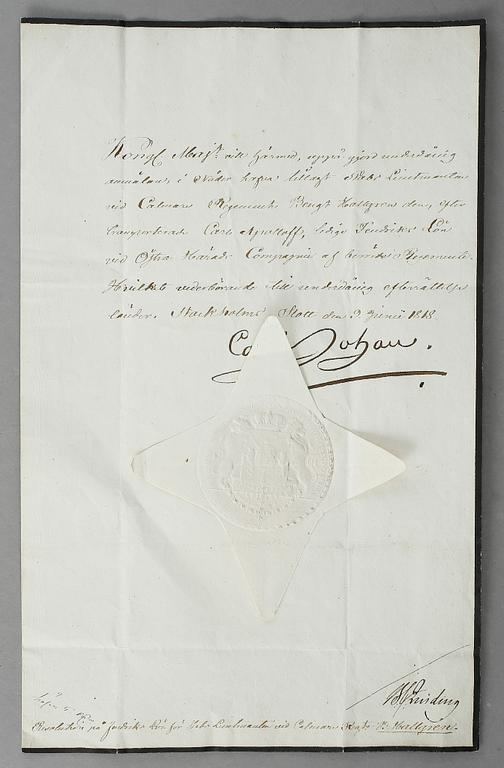 Kongl. Majt. vill härmed, uppå gjord underdånig
anmälan, i Nåder hafva tillagt Andre Lieutenanten
vid Calmare Regemente Bengt Hallgren den, efter
transporterade Carl Apolloff, ledige Fendriks Lön
vid Östra Härads Compagnie af berörde Regemente.
Hvilket vederbörande till underdånig efterrättelse
länder. Stockholms Slott den 9 Junii 1818.
Carl Johan.
Resolution på Fendriks Lön för Andre Lieutenanten vid Calmare B. Hallgren.